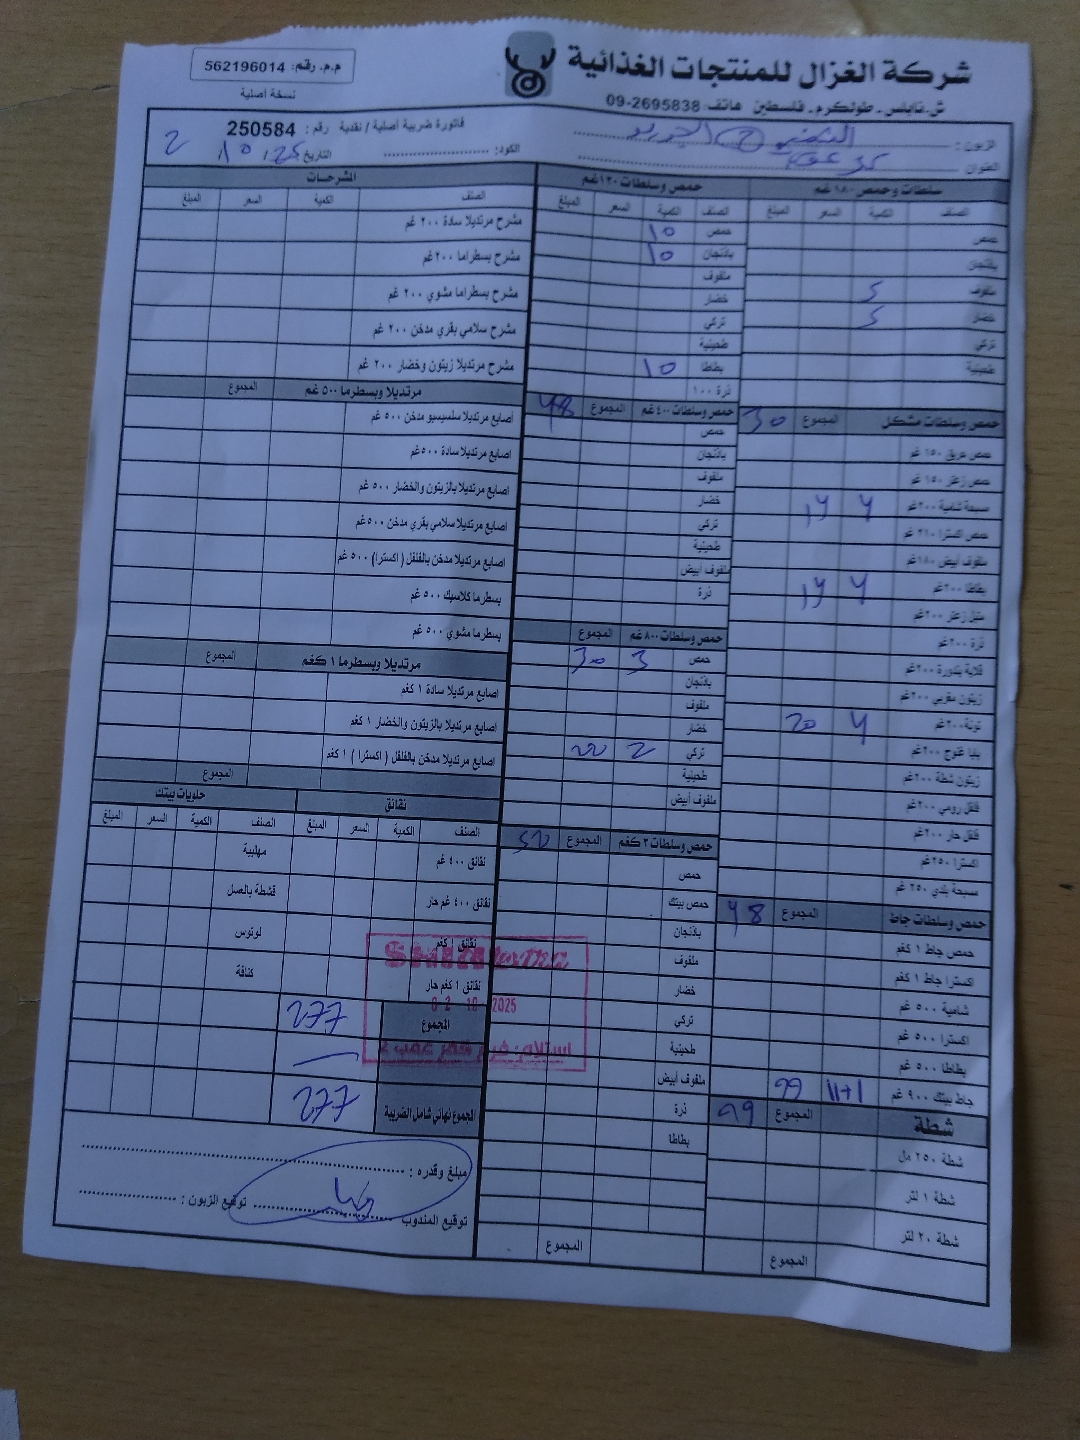 شركة الغزال للمنتجات الغذائية
ش.نابلس - طولكرم - فلسطين هاتف: 2695838-09
م.م. رقم: 562196014
نسخة أصلية
فاتورة ضريبية أصلية / نقدية رقم: 250584
الزبون:
العنوان
الكود:
التاريخ 2 / 10 / 25
سلطات وحمص ١٨٠غم
الصنف الكمية السعر المبلغ
حمص
باذنجان
ملفوف 5
خضار 5
تركي
طحينية
حمص وسلطات مشكل المجموع 30
حمص عريق ١٥٠ غم
حمص زعتر ١٥٠ غم
مسبحة شامية ٢٠٠غم 4 14
حمص اكسترا ٢١٠ غم
ملفوف أبيض ١٨٠غم
بطاطا ٢٠٠غم 4 14
متبل زعتر ٢٠٠غم
ذرة ٢٠٠غم
قلاية بندورة ٢٠٠غم
زيتون مغربي ٢٠٠غم
تونة ٢٠٠غم 4 20
بابا غنوج ٢٠٠غم
زيتون شطة ٢٠٠غم
فلفل رومي ٢٠٠غم
فلفل حار ٢٠٠غم
اكسترا ٢٥٠غم
مسبحة بلدي ٢٥٠ غم
حمص وسلطات جاط المجموع 48
حمص جاط ١ كغم
اكسترا جاط ١ كغم
شامية ٥٠٠ غم
اكسترا ٥٠٠ غم
بطاطا ٥٠٠ غم
جاط بيتك ٩٠٠ غم 11+1 99
شطة المجموع 99
شطة ٢٥٠ مل
شطة ١ لتر
شطة ٢٠ لتر
المجموع
حمص وسلطات ١٢٠غم
الصنف الكمية السعر المبلغ
حمص 10
باذنجان 10
ملفوف
خضار
تركي
طحينية
بطاطا 10
ذرة ١٠٠
حمص وسلطات ٤٠٠غم المجموع 48
حمص
باذنجان
ملفوف
خضار
تركي
طحينية
ملفوف أبيض
ذرة
حمص وسلطات ٨٠٠غم المجموع
حمص 3 30
باذنجان
ملفوف
خضار
تركي 2 22
طحينية
ملفوف أبيض
حمص وسلطات ٢ كغم المجموع 52
حمص
حمص بيتك
باذنجان
ملفوف
خضار
تركي
طحينية
ملفوف أبيض
ذرة
بطاطا
المجموع
المشرحات
الصنف الكمية السعر المبلغ
مشرح مرتديلا سادة ٢٠٠ غم
مشرح بسطراما ٢٠٠غم
مشرح بسطراما مشوي ٢٠٠ غم
مشرح سلامي بقري مدخن ٢٠٠ غم
مشرح مرتديلا زيتون وخضار ٢٠٠ غم
مرتديلا وبسطرما ٥٠٠ غم المجموع
اصابع مرتديلا سلسيسيو مدخن ٥٠٠ غم
اصابع مرتديلا سادة ٥٠٠غم
اصابع مرتديلا بالزيتون والخضار ٥٠٠ غم
اصابع مرتديلا سلامي بقري مدخن ٥٠٠غم
اصابع مرتديلا مدخن بالفلفل (اكسترا) ٥٠٠ غم
بسطرما كلاسيك ٥٠٠ غم
بسطرما مشوي ٥٠٠ غم
مرتديلا وبسطرما ١ كغم المجموع
اصابع مرتديلا سادة ١ كغم
اصابع مرتديلا بالزيتون والخضار ١ كغم
اصابع مرتديلا مدخن بالفلفل (اكسترا) ١ كغم
المجموع
نقانق
الصنف الكمية السعر المبلغ
نقانق ٤٠٠ غم
نقانق ٤٠٠ غم حار
نقانق ١ كغم
نقانق ١ كغم حار
حلويات بيتك
الصنف الكمية السعر المبلغ
مهلبية
قشطة بالعسل
لوتوس
كنافة
SHINI extra
02-10-2025
استلام: فرع كفر عقب 2
المجموع 277
المجموع نهائي شامل الضريبة 277
مبلغ وقدره:
توقيع المندوب توقيع الزبون: